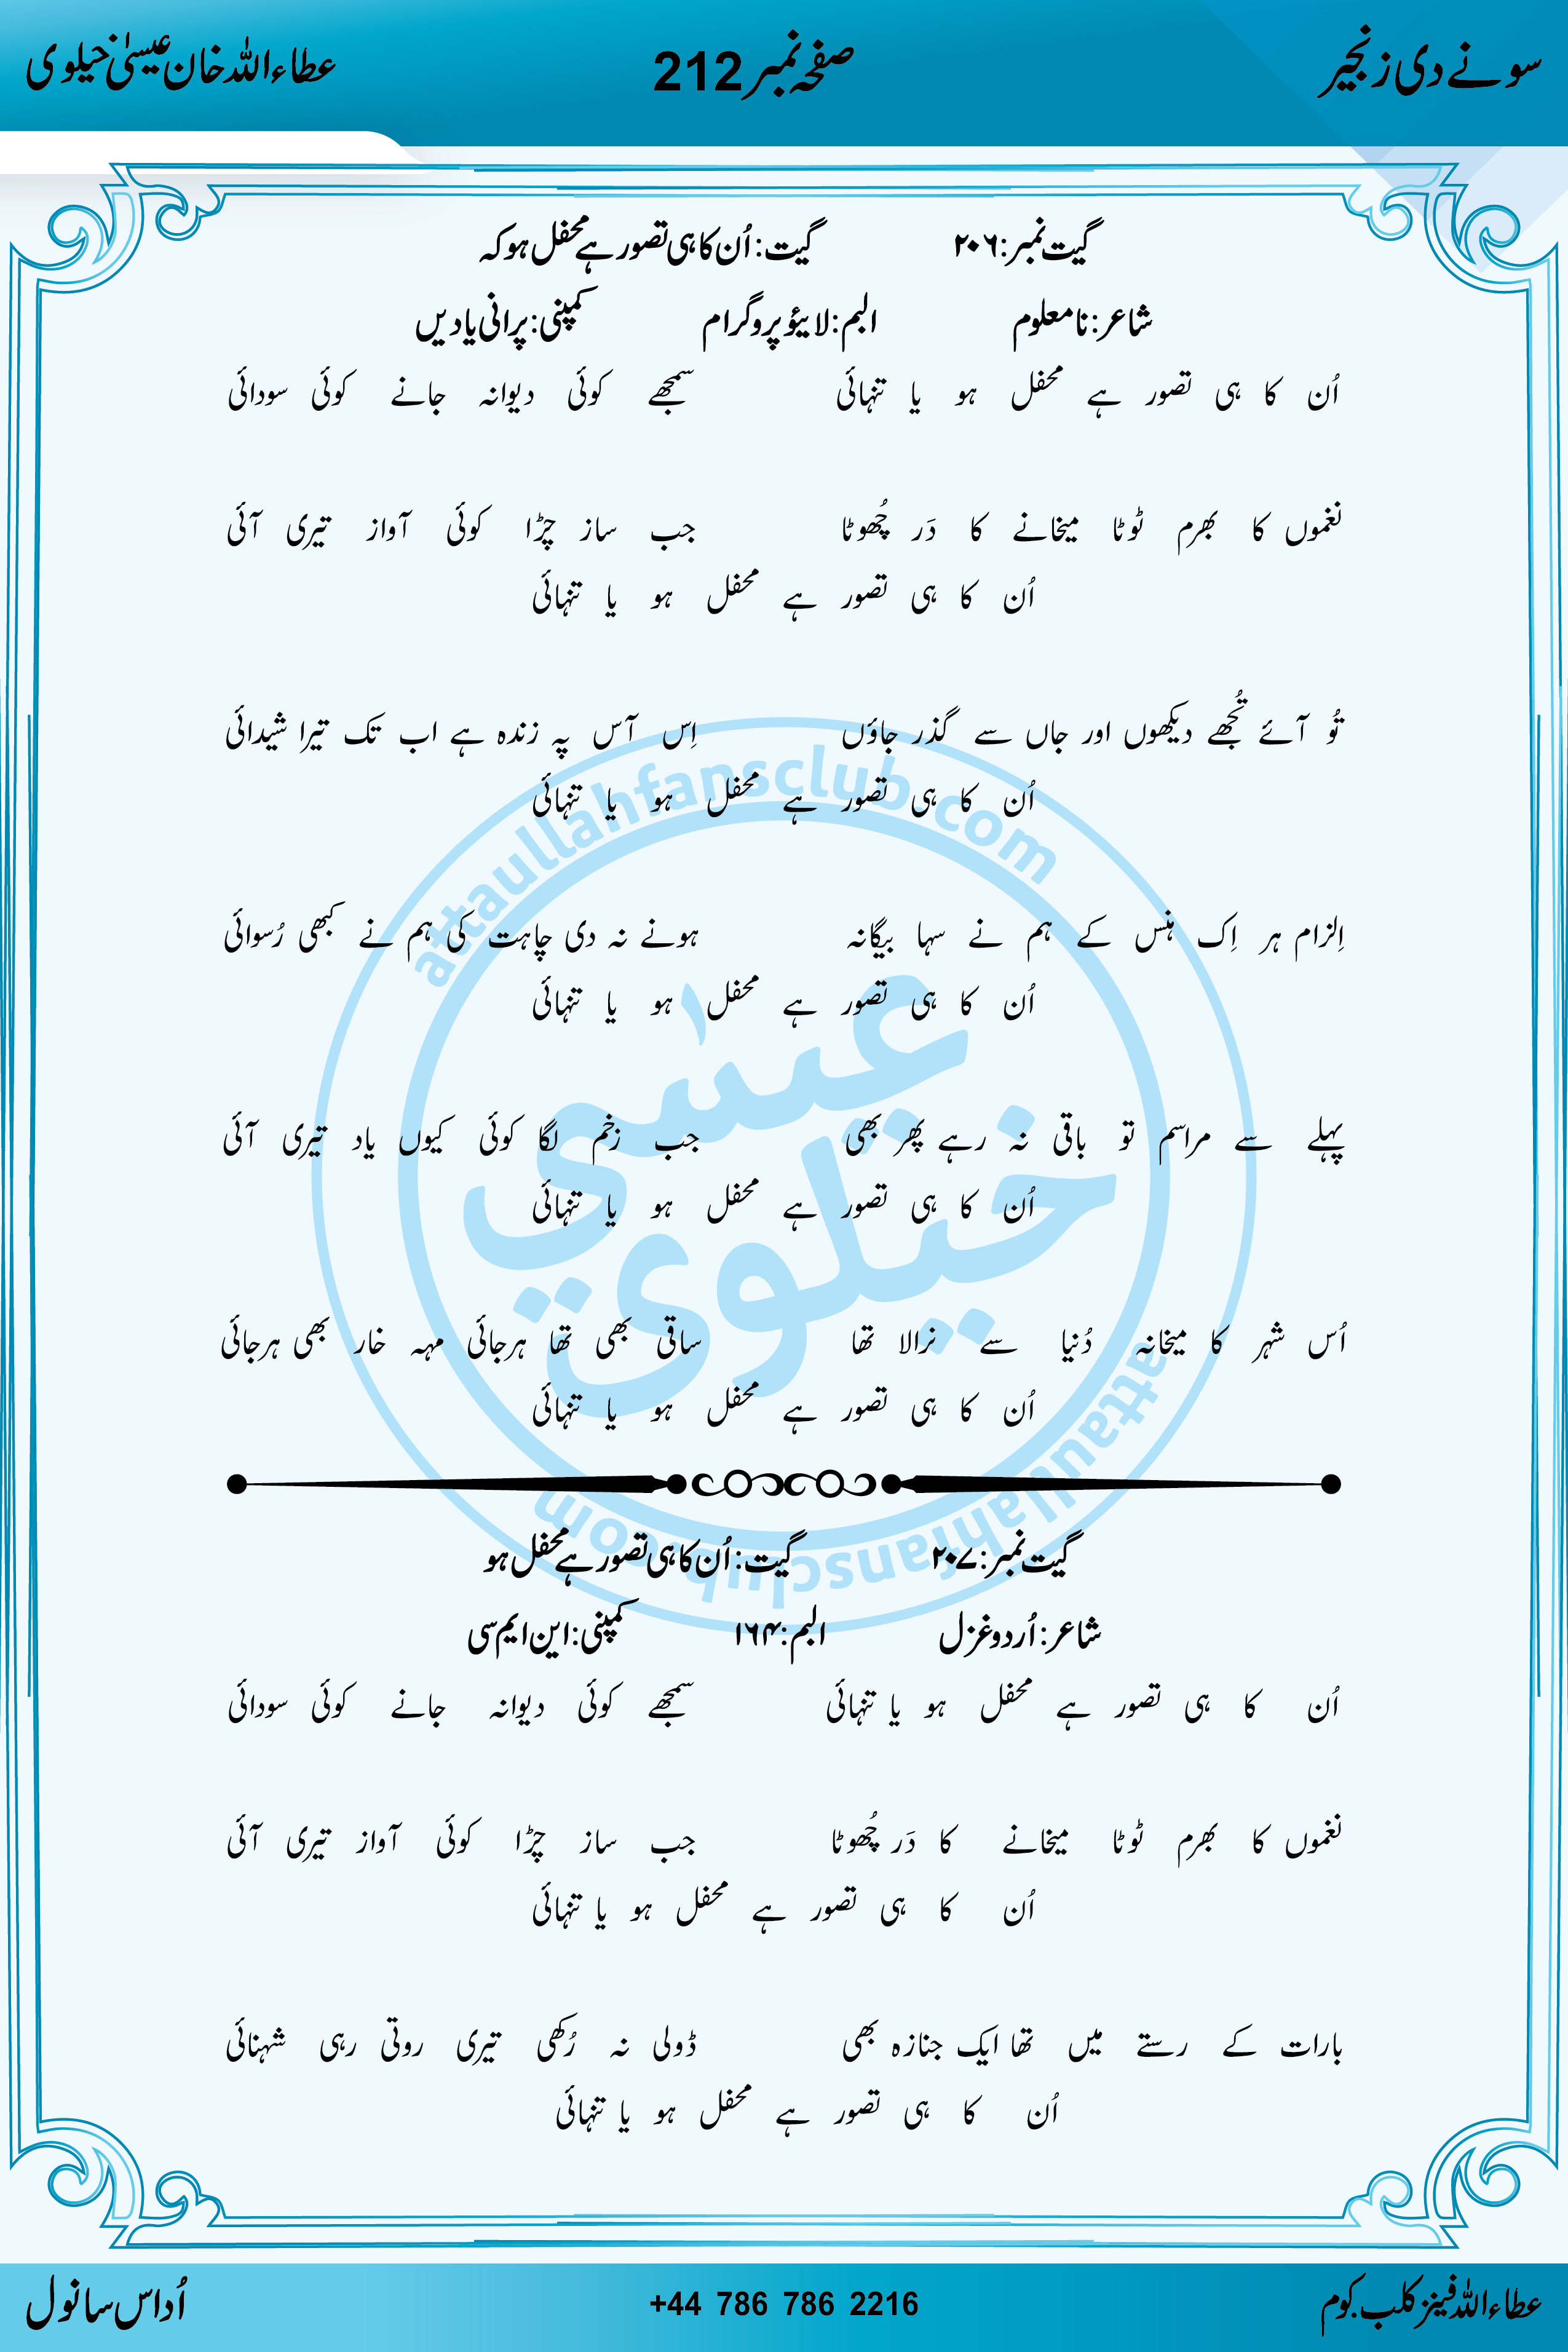 سونے دی زنجیر صفحہ نمبر 212 عطاءاللہ خان عیسیٰ خیلوی
گیت نمبر: ۲۰۶ گیت: اُن کا ہی تصور ہے محفل ہو کہ
شاعر: نامعلوم البم: لائیو پروگرام کمپنی: پرانی یادیں
اُن کا ہی تصور ہے محفل ہو یا تنہائی سمجھے کوئی دیوانہ جانے کوئی سودائی
نغموں کا بھرم ٹوٹا میخانے کا دَر چُھوٹا جب ساز چڑا کوئی آواز تیری آئی
اُن کا ہی تصور ہے محفل ہو یا تنہائی
تُو آئے تُجھے دیکھوں اور جاں سے گذر جاؤں اِس آس پہ زندہ ہے اب تک تیرا شیدائی
اُن کا ہی تصور ہے محفل ہو یا تنہائی
اِلزام ہر اِک ہنس کے ہم نے سہا بیگانہ ہونے نہ دی چاہت کی ہم نے کبھی رُسوائی
اُن کا ہی تصور ہے محفل ہو یا تنہائی
پہلے سے مراسم تو باقی نہ رہے پھر بھی جب زخم لگا کوئی کیوں یاد تیری آئی
اُن کا ہی تصور ہے محفل ہو یا تنہائی
اُس شہر کا میخانہ دُنیا سے نرالا تھا ساقی بھی تھا ہرجائی مہہ خار بھی ہرجائی
اُن کا ہی تصور ہے محفل ہو یا تنہائی
گیت نمبر: ۲۰۷ گیت: اُن کا ہی تصور ہے محفل ہو
شاعر: اُردو غزل البم: ۱۶۴ کمپنی: این ایم سی
اُن کا ہی تصور ہے محفل ہو یا تنہائی سمجھے کوئی دیوانہ جانے کوئی سودائی
نغموں کا بھرم ٹوٹا میخانے کا دَر چُھوٹا جب ساز چڑا کوئی آواز تیری آئی
اُن کا ہی تصور ہے محفل ہو یا تنہائی
بارات کے رستے میں تھا ایک جنازہ بھی ڈولی نہ رُکھی تیری روتی رہی شہنائی
اُن کا ہی تصور ہے محفل ہو یا تنہائی
attaullahfansclub.com
عیسٰی
خیلوی
attaullahfansclub.com
عطاءاللہ فینز کلب.کوم +44 786 786 2216 اُداس سانول